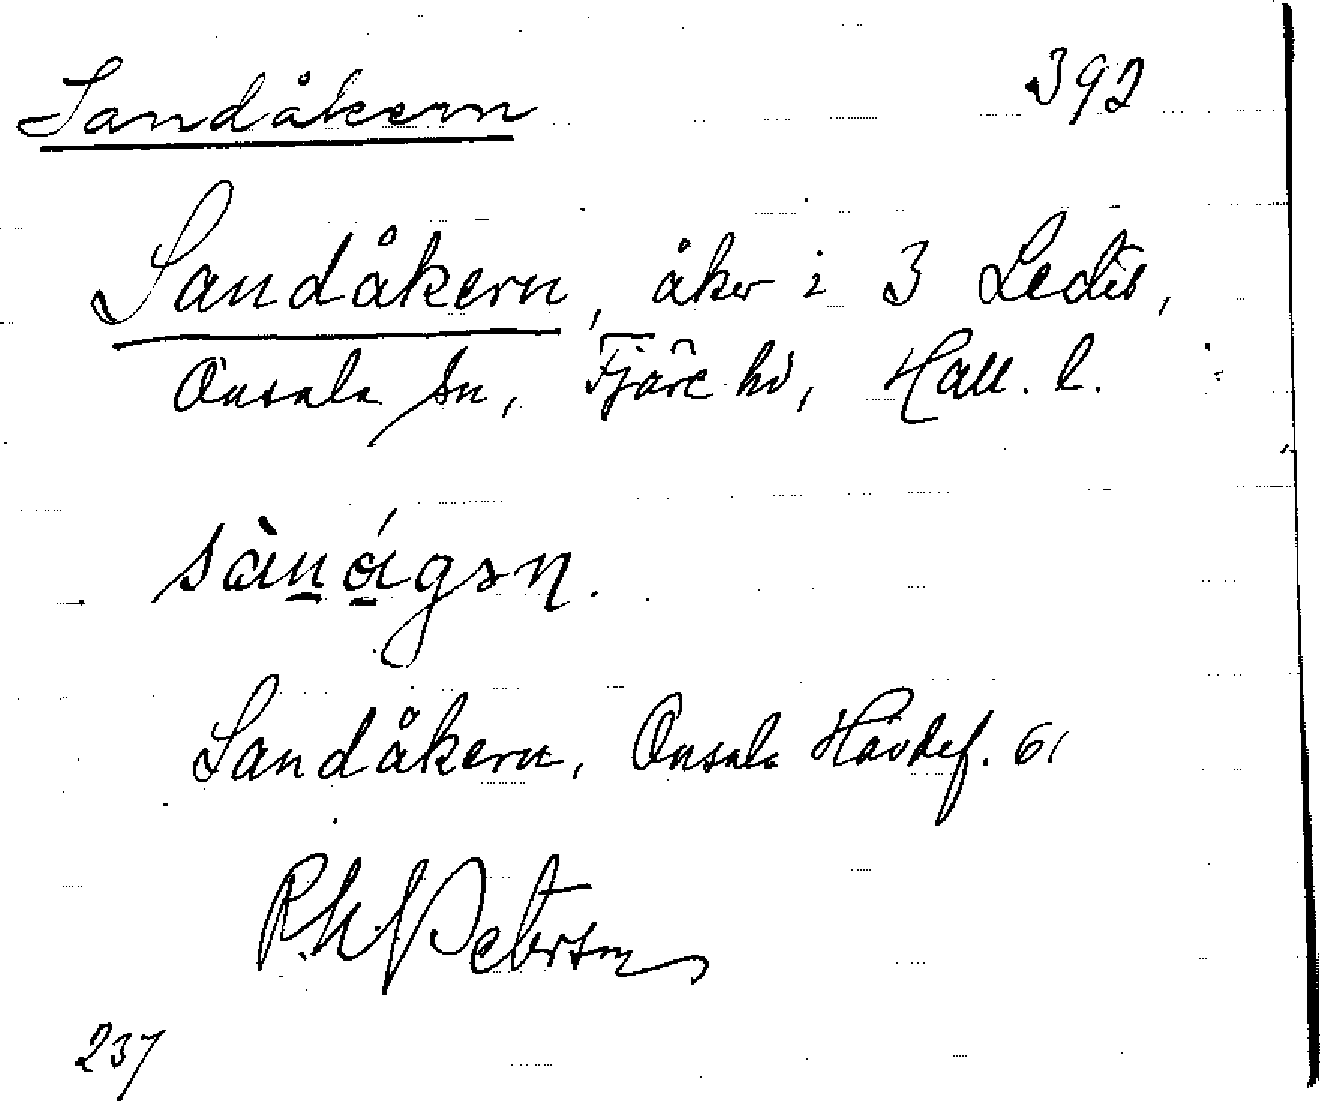 Sandåkern 392
Sandåkern, åker i 3 Ledet,
Onsala sn, Fjäre hd, Hall. l.
Sandåkern, Onsala Hävdef. 61
Peterson
237